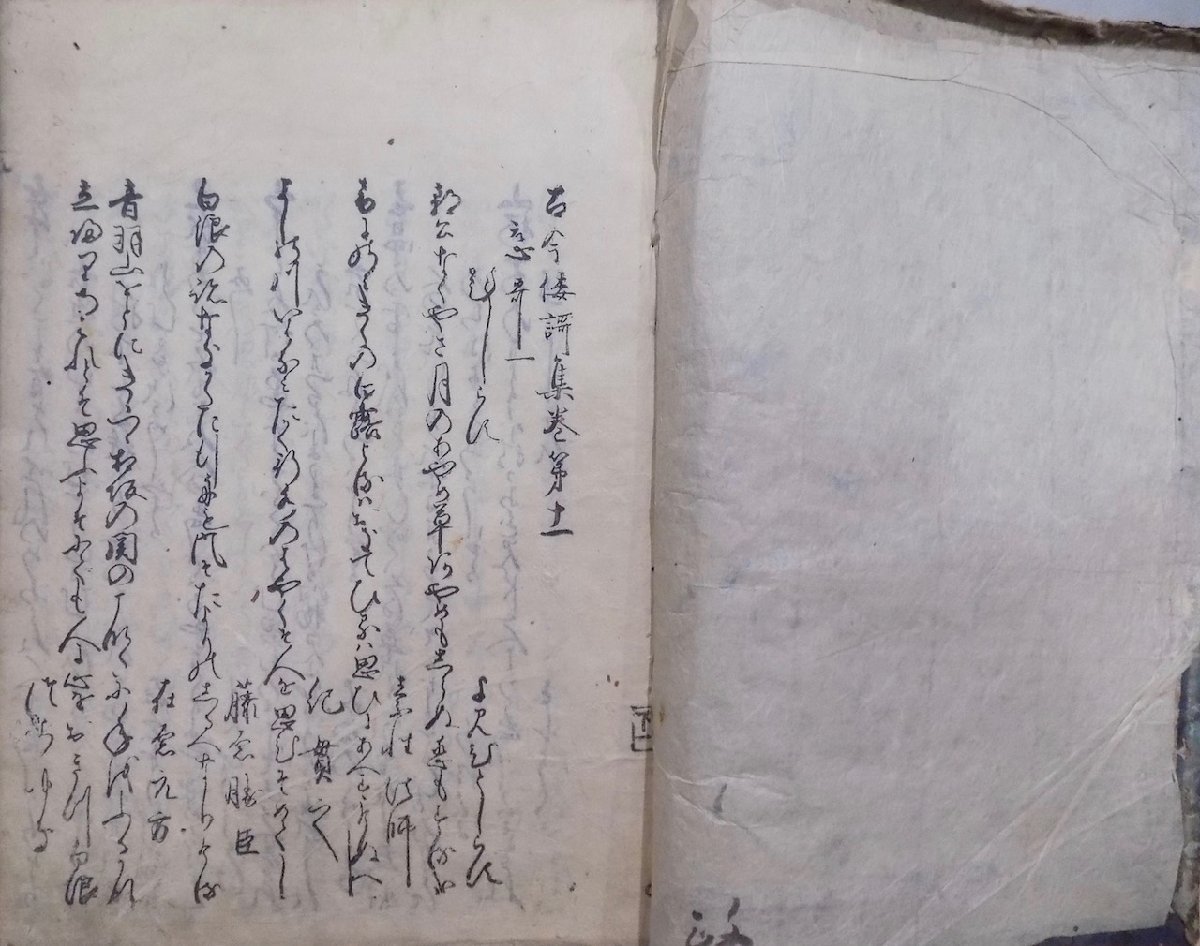 古今倭謌集巻第十一
恋哥一
題しらす
よみ人しらす
郭公なくやさ月のあやめ草あやめもしらぬ恋もする哉
素性法師
をとにのみきくの白露よるハおきてひるハ思ひにあへすけぬへし
紀貫之
よし野川いはなみたかく行水のはやくそ人を思ひそめてし
藤原勝臣
白浪の跡なきかたに行舟も風そたよりのしるへなりける
在原元方
音羽山をとにきゝつゝ相坂の関のこなたに年をふるかな
立帰りあはれとそ思ふよそにても人に心をおきつ白浪
つらゆき